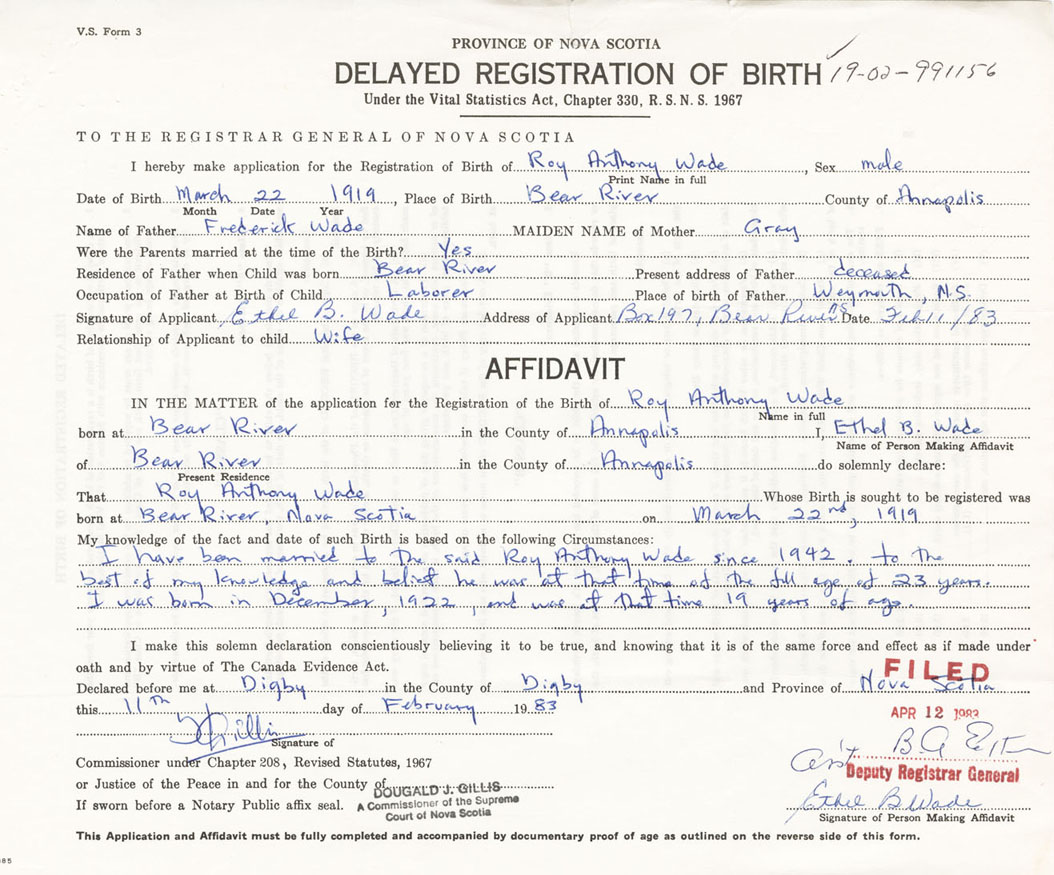 V.S. Form 3
PROVINCE OF NOVA SCOTIA
DELAYED REGISTRATION OF BIRTH 19-02-991156
Under the Vital Statistics Act, Chapter 330, R. S. N. S. 1967
TO THE REGISTRAR GENERAL OF NOVA SCOTIA
I hereby make application for the Registration of Birth of Roy Anthony Wade, Sex male
Print Name in full
Date of Birth March 22 1919, Place of Birth Bear River County of Annapolis
Month Date Year
Name of Father Frederick Wade MAIDEN NAME of Mother Gray
Were the Parents married at the time of the Birth? Yes
Residence of Father when Child was born Bear River Present address of Father deceased
Occupation of Father at Birth of Child Laborer Place of birth of Father Weymouth, N.S.
Signature of Applicant Ethel B. Wade Address of Applicant Box 197, Bear River NS Date Feb 11/83
Relationship of Applicant to child Wife
AFFIDAVIT
IN THE MATTER of the application for the Registration of the Birth of Roy Anthony Wade
Name in full
born at Bear River in the County of Annapolis I, Ethel B. Wade
Name of Person Making Affidavit
of Bear River in the County of Annapolis do solemnly declare:
Present Residence
That Roy Anthony Wade Whose Birth is sought to be registered was
born at Bear River, Nova Scotia on March 22nd, 1919
My knowledge of the fact and date of such Birth is based on the following Circumstances:
I have been married to the said Roy Anthony Wade since 1942. to the
best of my knowledge and belief he was at that time of the full age of 23 years.
I was born in December, 1922, and was at that time 19 years of age.
I make this solemn declaration conscientiously believing it to be true, and knowing that it is of the same force and effect as if made under
oath and by virtue of The Canada Evidence Act.
FILED
Declared before me at Digby in the County of Digby and Province of Nova Scotia
this 11th day of February 19 83
APR 12 1983
Signature of
Commissioner under Chapter 208, Revised Statutes, 1967
Deputy Registrar General
or Justice of the Peace in and for the County of
DOUGALD J. GILLIS
A Commissioner of the Supreme
Court of Nova Scotia
If sworn before a Notary Public affix seal.
Ethel B Wade
Signature of Person Making Affidavit
This Application and Affidavit must be fully completed and accompanied by documentary proof of age as outlined on the reverse side of this form.